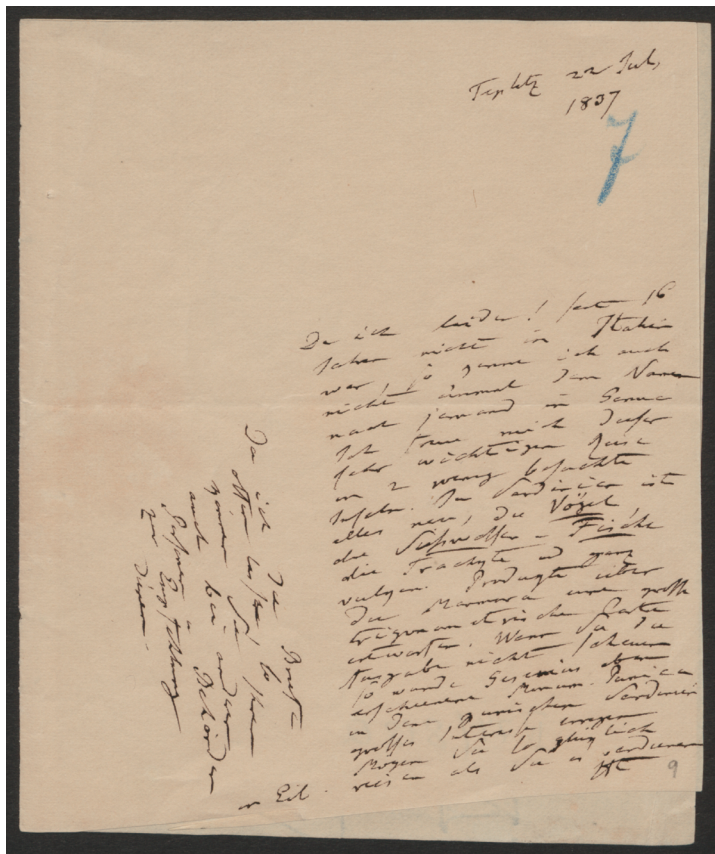 Teplitz 22 Jul,
1837
7
Da ich leider! seit 16
Jahren nicht in Italien
war, so kenne ich auch
nicht einmal dem Namen
nach jemand in Genua
Ich freue mich dieser
sehr wichtigen Reise
in 2 wenig besuchte
Inseln. In Sardinien ist
alles neu, die Vögel
die Süßwasser-Fische
die Trachyte und ganz
vulgen. Produgte über
die Marmora eine große
trigonometrische Carte
erwarten. Wenn Sie die
Ausgabe nicht scheuen
so würde Gesenius eben
erschienene Monum. Punica
in dem punischen Sardinien
großes Interesse erregen
Mögen Sie so glücklich
reisen als Sie es verdienen
in Eil.
Ht
9
Da ich die Briefe
offen lasse, so
können Sie Ihnen
auch bei andern Behörden
zur
dienen.